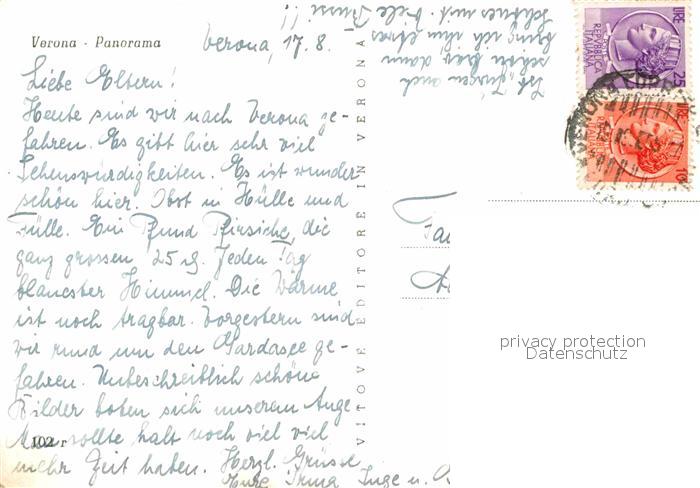 Verona - Panorama
Verona, 17.8.
Liebe Eltern!
Heute sind wir nach Verona ge-
fahren. Es gibt hier sehr viel
Sehenswürdigkeiten. Es ist wunder
schön hier. Obst in Hülle und
Fülle. Ein Pfund Pfirsiche, die
ganz grossen 25 ₰. Jeden Tag
blauester Himmel. Die Wärme
ist noch tragbar. Vorgestern sind
wir rund um den Gardasee ge-
fahren. Unbeschreiblich schöne
Bilder boten sich unserem Auge
Man sollte halt noch viel viel
mehr Zeit haben. Herzl. Grüsse
Eure Irma Inge u.
102 r
Ist Jürgen auch
schön brav dann
bring ich ihm etwas
schönes mit. Viele Bussi!!
VITOVE EDITORE IN VERONA
LIRE 25
REPUBBLICA
ITALIANA
LIRE 10
REPUBBLICA
ITALIANA
VERONA
Fa
privacy protection
Datenschutz